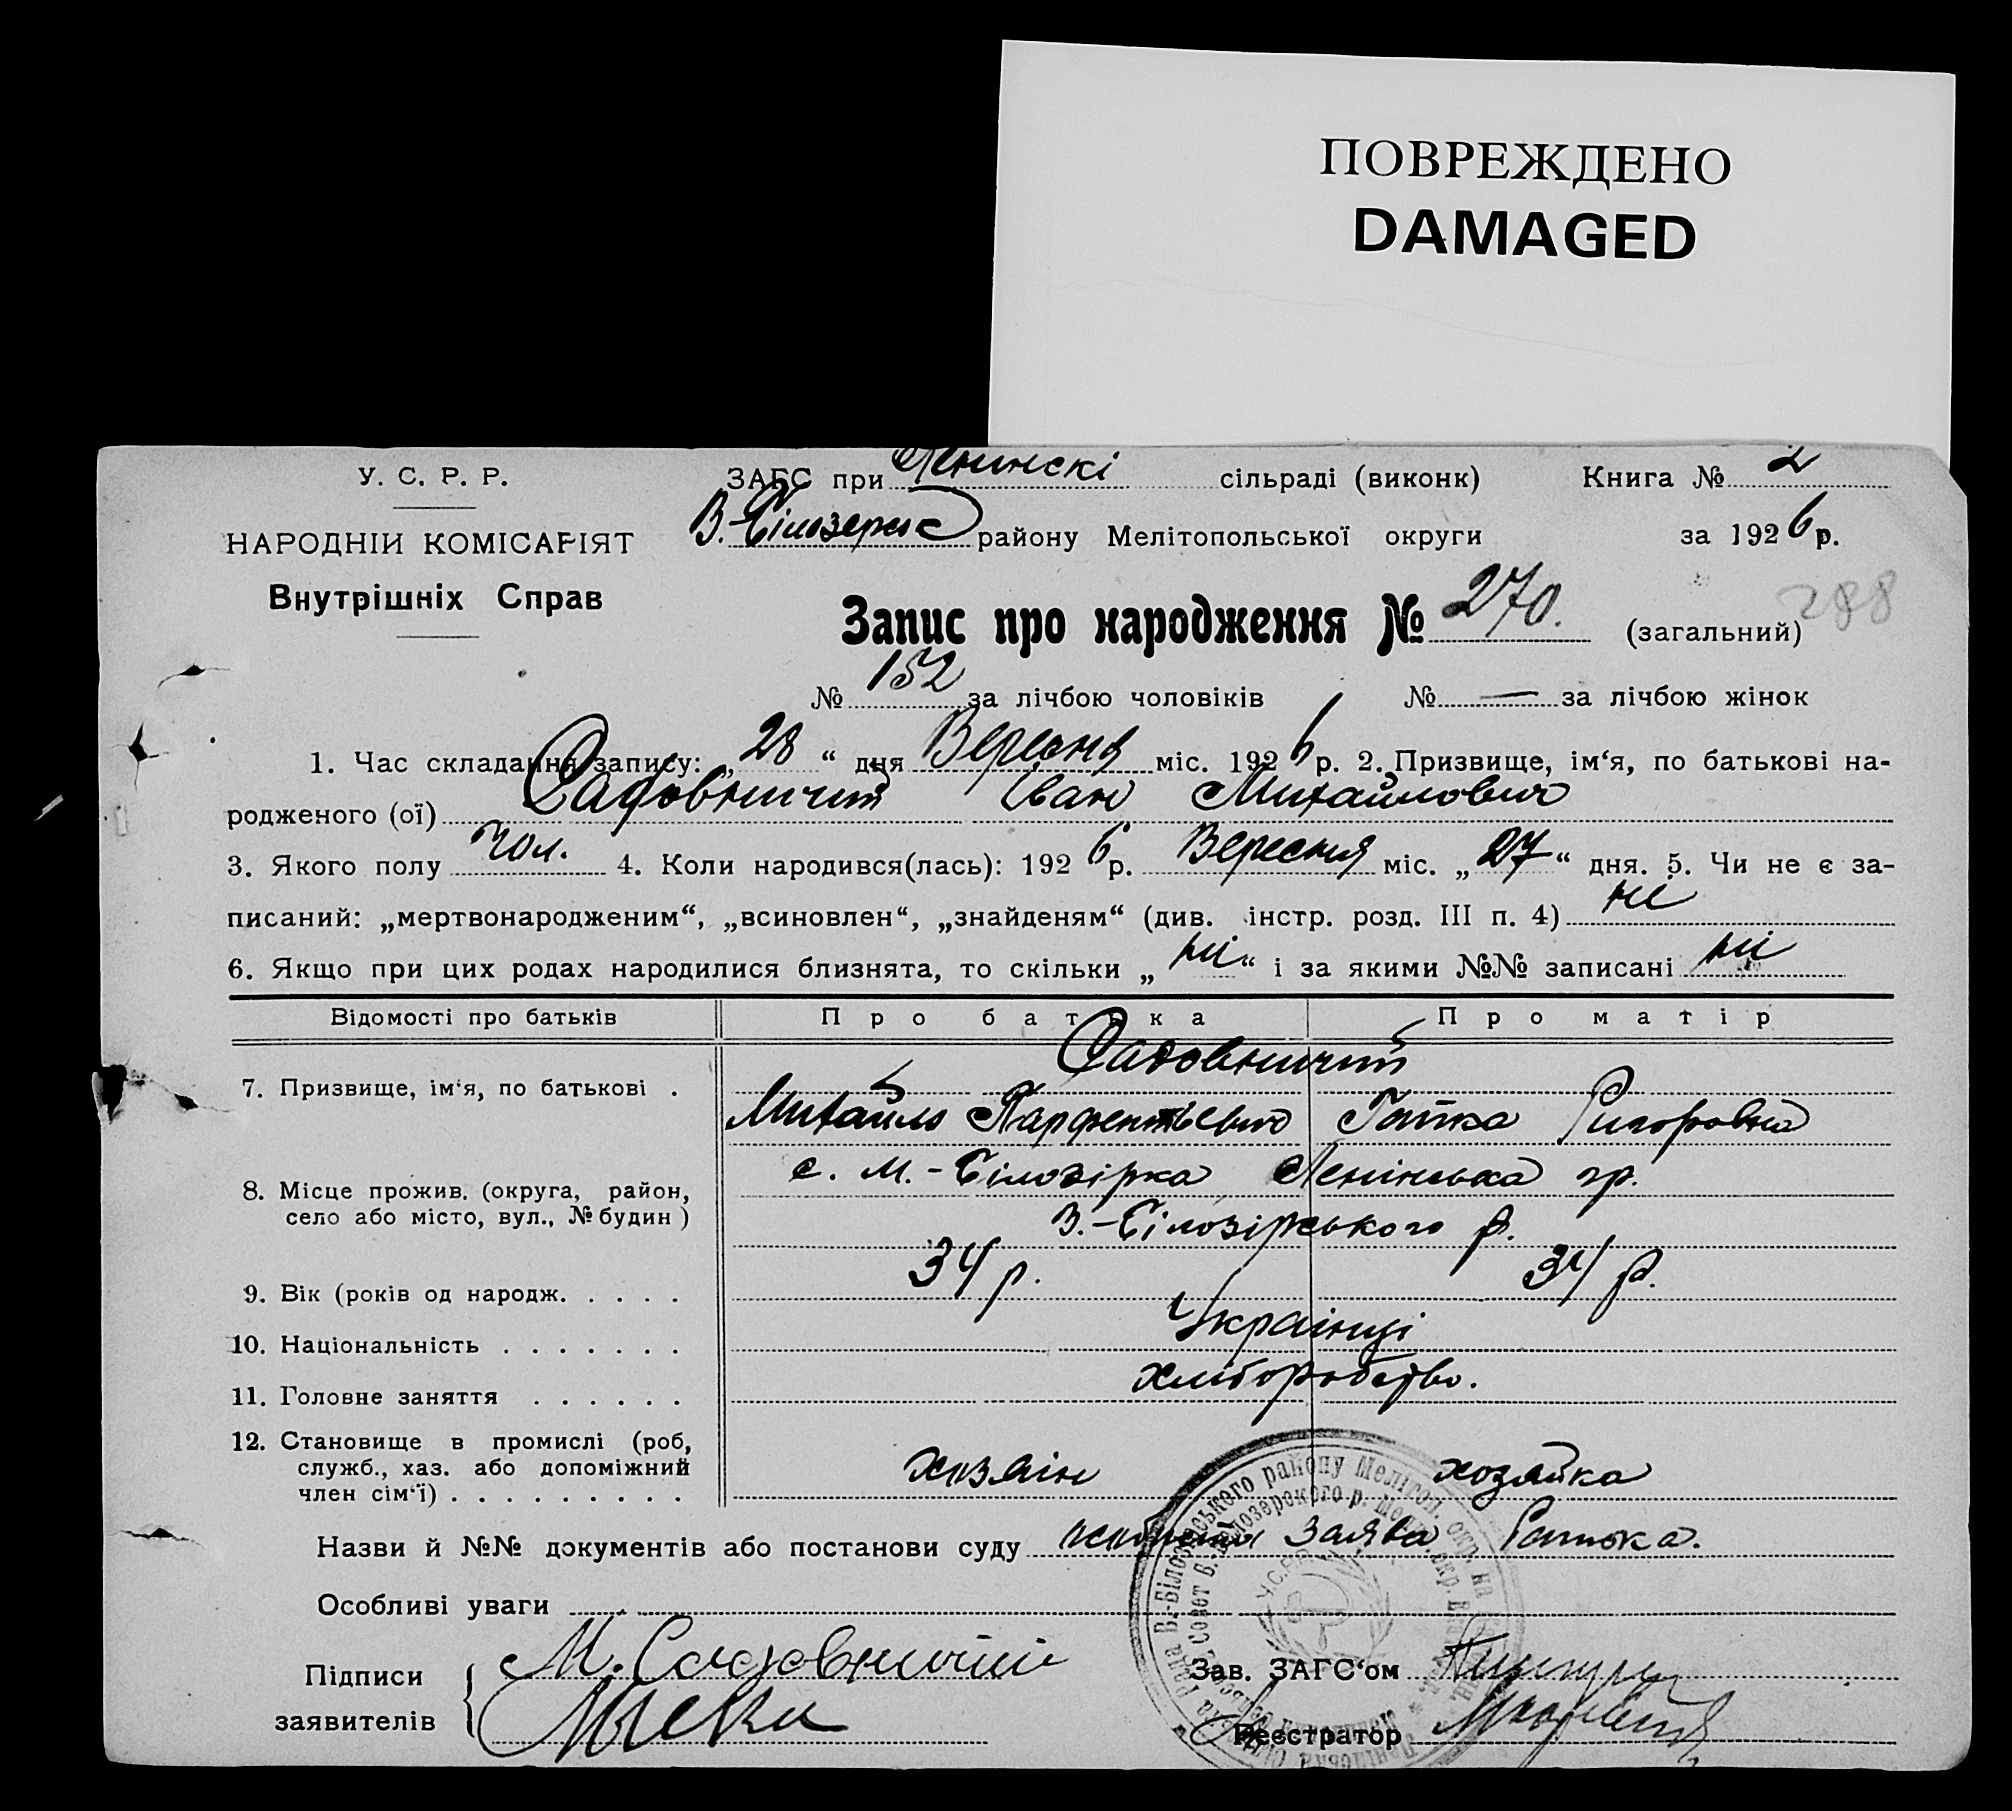 ПОВРЕЖДЕНО
DAMAGED
У. С. Р. Р.
ЗАГС при Ленинскі сільраді (виконк) Книга № 2
НАРОДНІИ КОМІСАРІЯТ
В.-Білозерськ району Мелітопольської округи за 1926 р.
Внутрішніх Справ
Запис про народження № 270. (загальний) 288
№ 152 за лічбою чоловіків № — за лічбою жінок
1. Час складання запису: „28“ дня Вересня міс. 1926 р. 2. Призвище, ім‘я, по батькові на-
родженого (ої) Садовничий Іван Михайлович
3. Якого полу чол. 4. Коли народився(лась): 1926 р. Вересня міс. „27“ дня. 5. Чи не є за-
писаний: „мертвонародженим“, „всиновлен“, „знайденям“ (див. інстр. розд. III п. 4) ні
6. Якщо при цих родах народилися близнята, то скільки „ні“ і за якими №№ записані ні
Відомості про батьків Про батька Про матір
Садовничий
7. Призвище, ім‘я, по батькові .
Михайло Парфентьевич Ригоровна
с. М.-Білозірка Ленінська гр.
8. Місце прожив. (округа, район,
село або місто, вул., № будин)
В.-Білозірського р.
9. Вік (років од народж. . . . . 34 р. 34 р.
10. Національність . . . . . . . Українці
11. Головне заняття . . . . . . хліборобство.
12. Становище в промислі (роб,
служб., хаз. або допоміжний
член сім‘ї) . . . . . . . . . хозяін хозяйка
Назви й №№ документів або постанови суду заява батька.
Особливі уваги
Підписи
заявителів
М. Садовничий
Зав. ЗАГС‘ом
Реєстратор